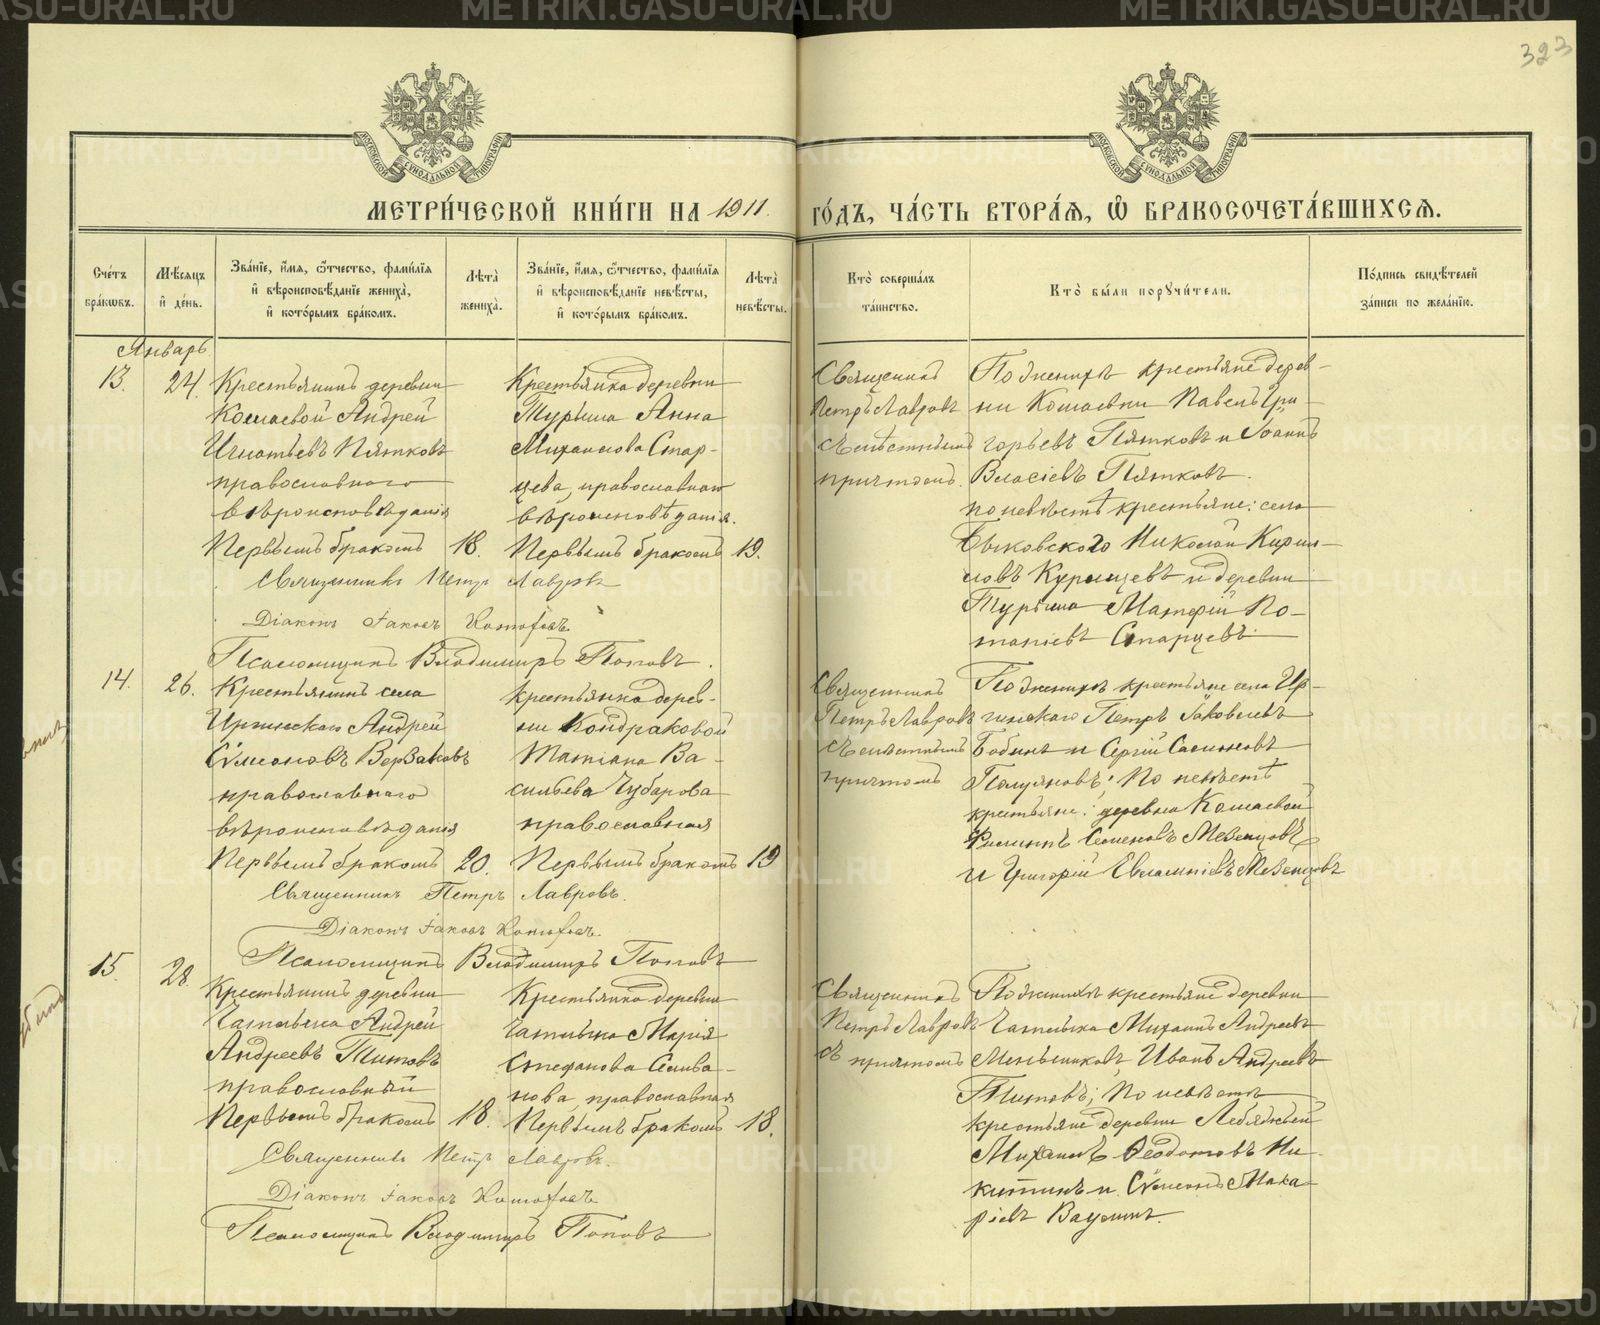 323
МЕТРИ́ЧЕСКОЙ КНИ́ГИ НА 1911 ГО́ДЪ, ЧА́СТЬ ВТОРА́Я, Ѽ БРАКОСОЧЕТА́ВШИХСЯ.
Сче́тъ бра́кѡвъ.
Мѣ́сяцъ и҆ де́нь.
Зва́нїе, и҆́мя, ѻ҆́тчество, фами́лїя и҆ вѣроисповѣ́данїе жениха̀, и҆ кото́рымъ бра́комъ.
Лѣ́та жениха̀.
Зва́нїе, и҆́мя, ѻ҆́тчество, фами́лїя и҆ вѣроисповѣ́данїе невѣ́сты, и҆ кото́рымъ бра́комъ.
Лѣ́та невѣ́сты.
Кто̀ соверша́лъ та́инство.
Кто̀ бы́ли поручи́тели.
По́дпись свидѣ́телей за́писи по жела́нїю.
Январь
13.
24.
Крестьянинъ деревни
Кошаевой Андрей
Игнатьевъ Пятковъ
православнаго
вѣроисповѣданія
Первымъ бракомъ
18.
Крестьянка деревни
Турыша Анна
Михаилова Стар-
цева, православнаго
вѣроисповѣданія.
Первымъ бракомъ
19.
Священникъ
Петръ Лавровъ
съ мѣстнымъ
причтомъ.
По женихѣ крестьяне дерев-
ни Кошаевки Павелъ Гри-
горьевъ Пятковъ и Іоаннъ
Власіевъ Пятковъ.
по невѣстѣ крестьяне: села
Быковскаго Николай Кирил-
ловъ Курынцевъ и деревни
Турыша Матфій По-
тапіевъ Старцевъ.
Священникъ Петръ Лавровъ
Діаконъ Іаковъ
Псаломщикъ Владимиръ Поповъ.
14.
26.
Крестьянинъ села
Иргинскаго Андрей
Сѵмеоновъ Верзаковъ
православнаго
вѣроисповѣданія
Первымъ бракомъ
20.
крестьянка дерев-
ни Кондраковой
Татіана Ва-
сильева Чубарова
православная
Первымъ бракомъ
19
Священникъ
Петръ Лавровъ
съ мѣстнымъ
причтомъ
По женихѣ крестьяне села Ир-
гинскаго Петръ Іаковлевъ
Бабинъ и Сергій
По невѣстѣ
крестьяне: деревни Кошаевой
Филиппъ Семеновъ Мезенцовъ
и Григорій Евлампіевъ Мезенцовъ
Священникъ Петръ Лавровъ.
Діаконъ Іаковъ
Псаломщикъ Владимиръ Поповъ
15.
28.
Крестьянинъ деревни
Чатлыка Андрей
Андреевъ Титовъ
православный
Первымъ бракомъ
18.
Крестьянка деревни
Чатлыка Марія
Стефанова Селива-
нова, православная
Первымъ бракомъ
18.
Священникъ
Петръ Лавровъ
съ причтомъ
По женихѣ крестьяне деревни
Чатлыка Михаилъ Андреевъ
Меньшиковъ, Иванъ Андреевъ
Титовъ; По невѣстѣ
крестьяне деревни Лебяжьей
Михаилъ Ѳеодотовъ Ни-
китинъ и Сѵмеонъ Мака-
ріевъ
Священникъ Петръ Лавровъ.
Діаконъ Іаковъ
Псаломщикъ Владимиръ Поповъ
METRIKI.GASU-URAL.RU